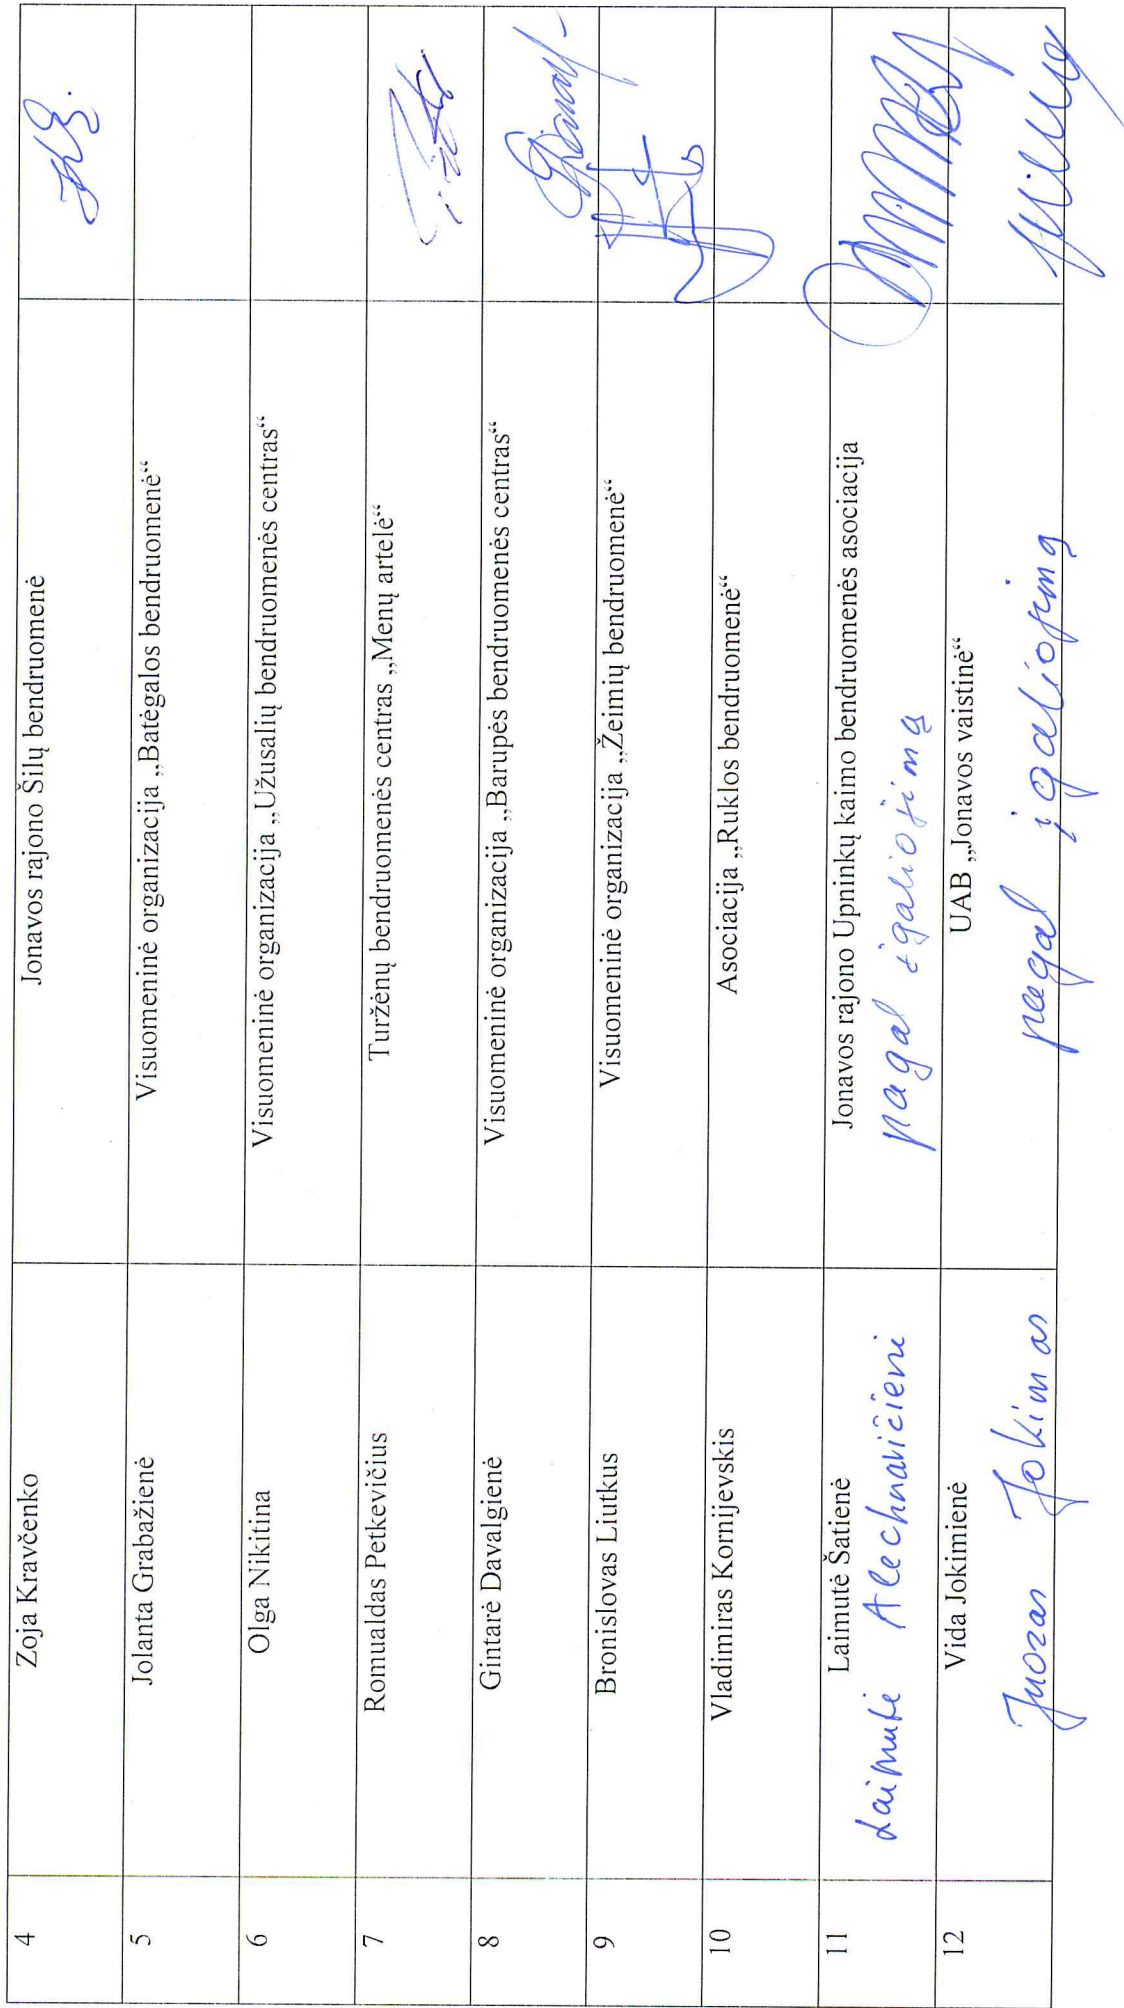 4 Zoja Kravčenko Jonavos rajono Šilų bendruomenė
5 Jolanta Grabažienė Visuomeninė organizacija „Batėgalos bendruomenė“
6 Olga Nikitina Visuomeninė organizacija „Užusalių bendruomenės centras“
7 Romualdas Petkevičius Turžėnų bendruomenės centras „Menų artelė“
8 Gintarė Davalgienė Visuomeninė organizacija „Barupės bendruomenės centras“
9 Bronislovas Liutkus Visuomeninė organizacija „Žeimių bendruomenė“
10 Vladimiras Kornijevskis Asociacija „Ruklos bendruomenė“
11 Laimutė Šatienė Jonavos rajono Upninkų kaimo bendruomenės asociacija
Laimutė Alechnavičienė pagal įgaliojimą
12 Vida Jokimienė UAB „Jonavos vaistinė“
Juozas Jokimas pagal įgaliojimą